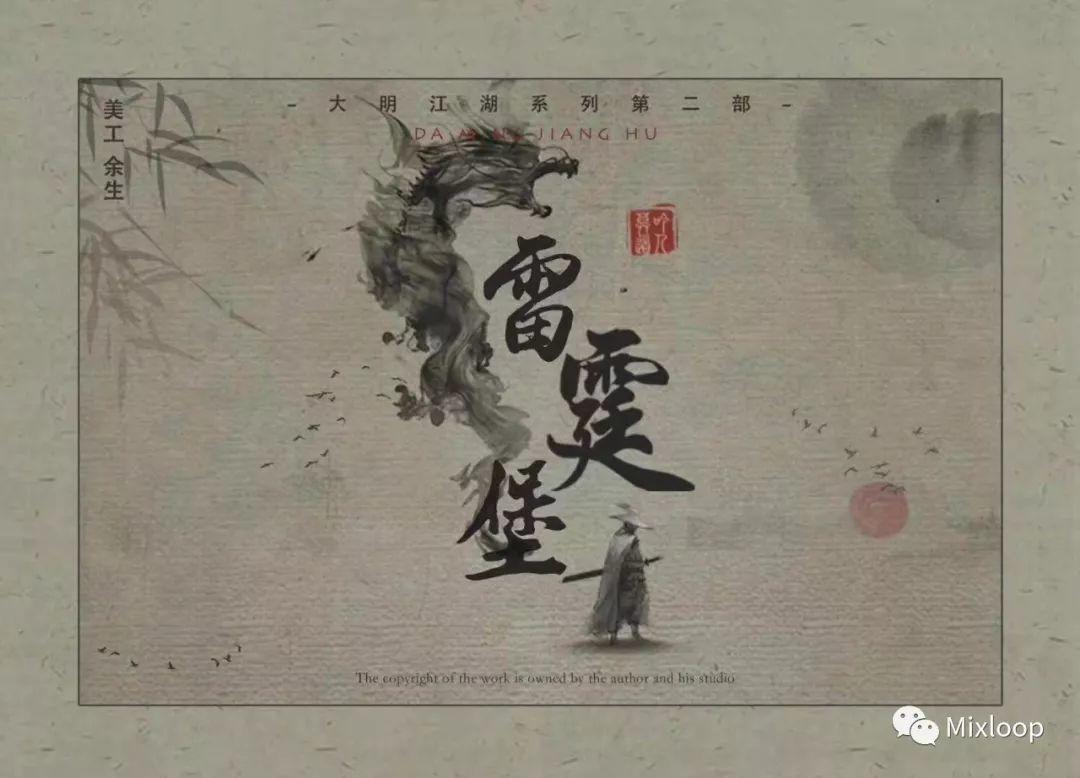 - 大明江湖系列第二部 -
DA MING JIANG HU
美工 余生
雷霆堡
The copyright of the work is owned by the author and his studio
Mixloop